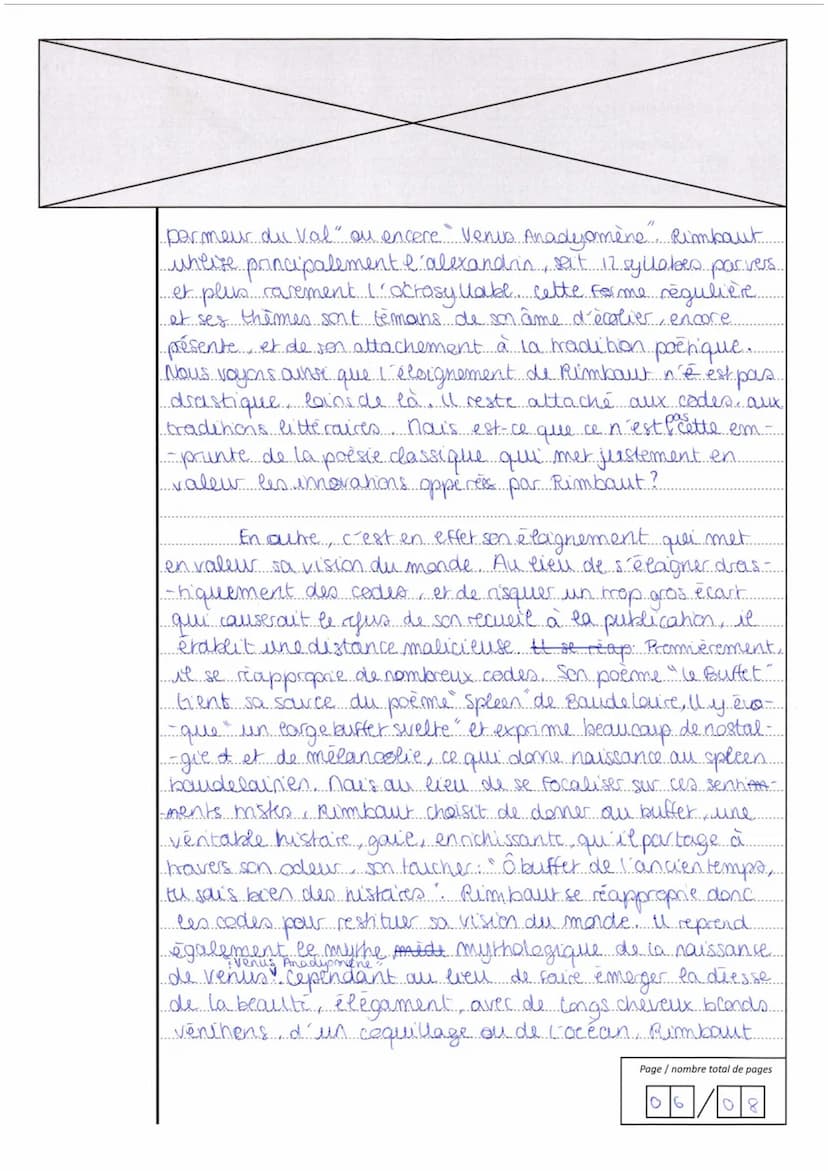 Dormeur du Val" ou encore "Venus Anadyomène". Rimbaut
utilise principalement l'alexandrin, soit 12 syllabes par vers
et plus rarement l'octosyllabe. Cette forme régulière
et ses thèmes sont témoins de son âme d'écolier, encore
présente, et de son attachement à la tradition poétique.
Nous voyons ainsi que l'éloignement de Rimbaut n'é est pas
drastique, loins de là. Il reste attaché aux codes, aux
traditions littéraires. Mais est-ce que ce n'est pas cette em-
-prunte de la poésie classique qui met justement en
valeur les innovations oppérées par Rimbaut?
En outre, c'est en effet son éloignement qui met
en valeur sa vision du monde. Au lieu de s'éloigner dras-
-tiquement des codes, et de risquer un trop gros écart
qui causerait le refus de son recueil à la publication, il
établit une distance malicieuse. Il se réap. Premmièrement,
il se réapproprie de nombreux codes. Son poème "Le Buffet"
tient sa source du poème "Spleen" de Baudelaire, Il y évo-
-que "un large buffet svelte" et exprime beaucoup de nostal-
-gie et de mélancolie, ce qui donne naissance au spleen
baudelairien. Mais au lieu de se focaliser sur ces senti-
-ments tristes, Rimbaut choisit de donner au buffet, une
véritable histoire, gaie, enrichissante, qu'il partage à
travers son odeur, son toucher: "Ô buffet de l'ancien temps,
tu sais bien des histoires". Rimbaut se réapproprie donc
les codes pour restituer sa vision du monde. Il reprend
également le mythe mythologique de la naissance
de Venus "Venus Anadyomène". Cependant au lieu de faire émerger la déesse
de la beauté, élégament, avec de longs cheveux blonds
vénitiens, d'un coquillage ou de l'océan, Rimbaut
Page / nombre total de pages
06 / 08